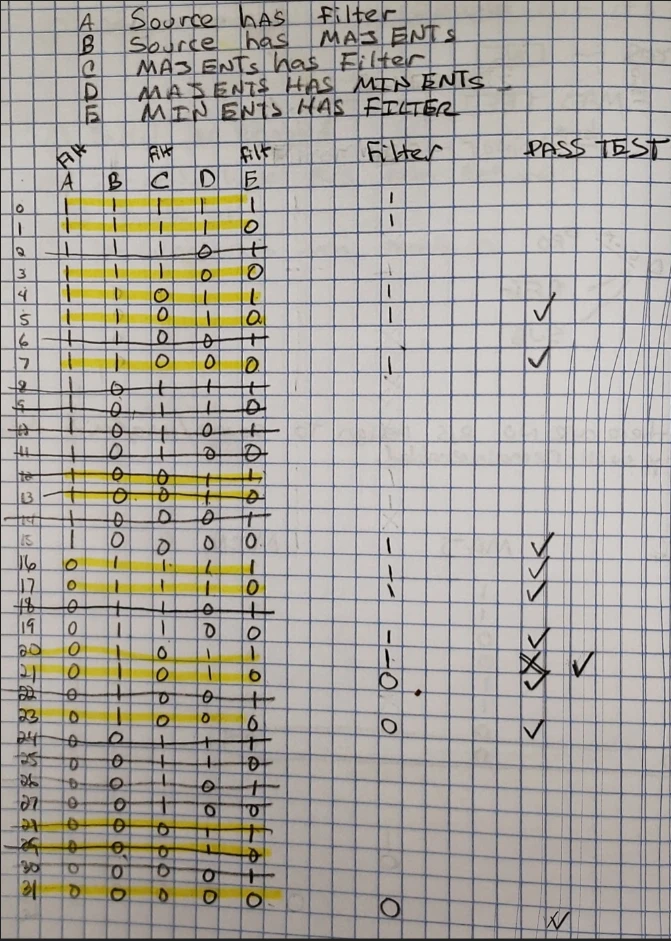 A Source hAS Filter
B Source has MAJ ENTs
C MAJ ENTs has Filter
D MAJ ENTS HAS MIN ENTS
E MIN ENTS HAS FILTER
Filt Filt Filt Filter PASS TEST
A B C D E
0 1 1 1 1 1 1
1 1 1 1 1 0 1
2 1 1 1 0 1
3 1 1 1 0 0
4 1 1 0 1 1 1
5 1 1 0 1 0 1 ✓
6 1 1 0 0 1
7 1 1 0 0 0 1 ✓
8 1 0 1 1 1
9 1 0 1 1 0
10 1 0 1 0 1
11 1 0 1 0 0
12 1 0 0 1 1
13 1 0 0 1 0
14 1 0 0 0 1
15 1 0 0 0 0 1 ✓
16 0 1 1 1 1 1 ✓
17 0 1 1 1 0 1 ✓
18 0 1 1 0 1
19 0 1 1 0 0 1 ✓
20 0 1 0 1 1 1 X ✓
21 0 1 0 1 0 0 ✓
22 0 1 0 0 1
23 0 1 0 0 0 0 ✓
24 0 0 1 1 1
25 0 0 1 1 0
26 0 0 1 0 1
27 0 0 1 0 0
0 0 0 1 1
29 0 0 0 1 0
30 0 0 0 0 1
31 0 0 0 0 0 0 ✓